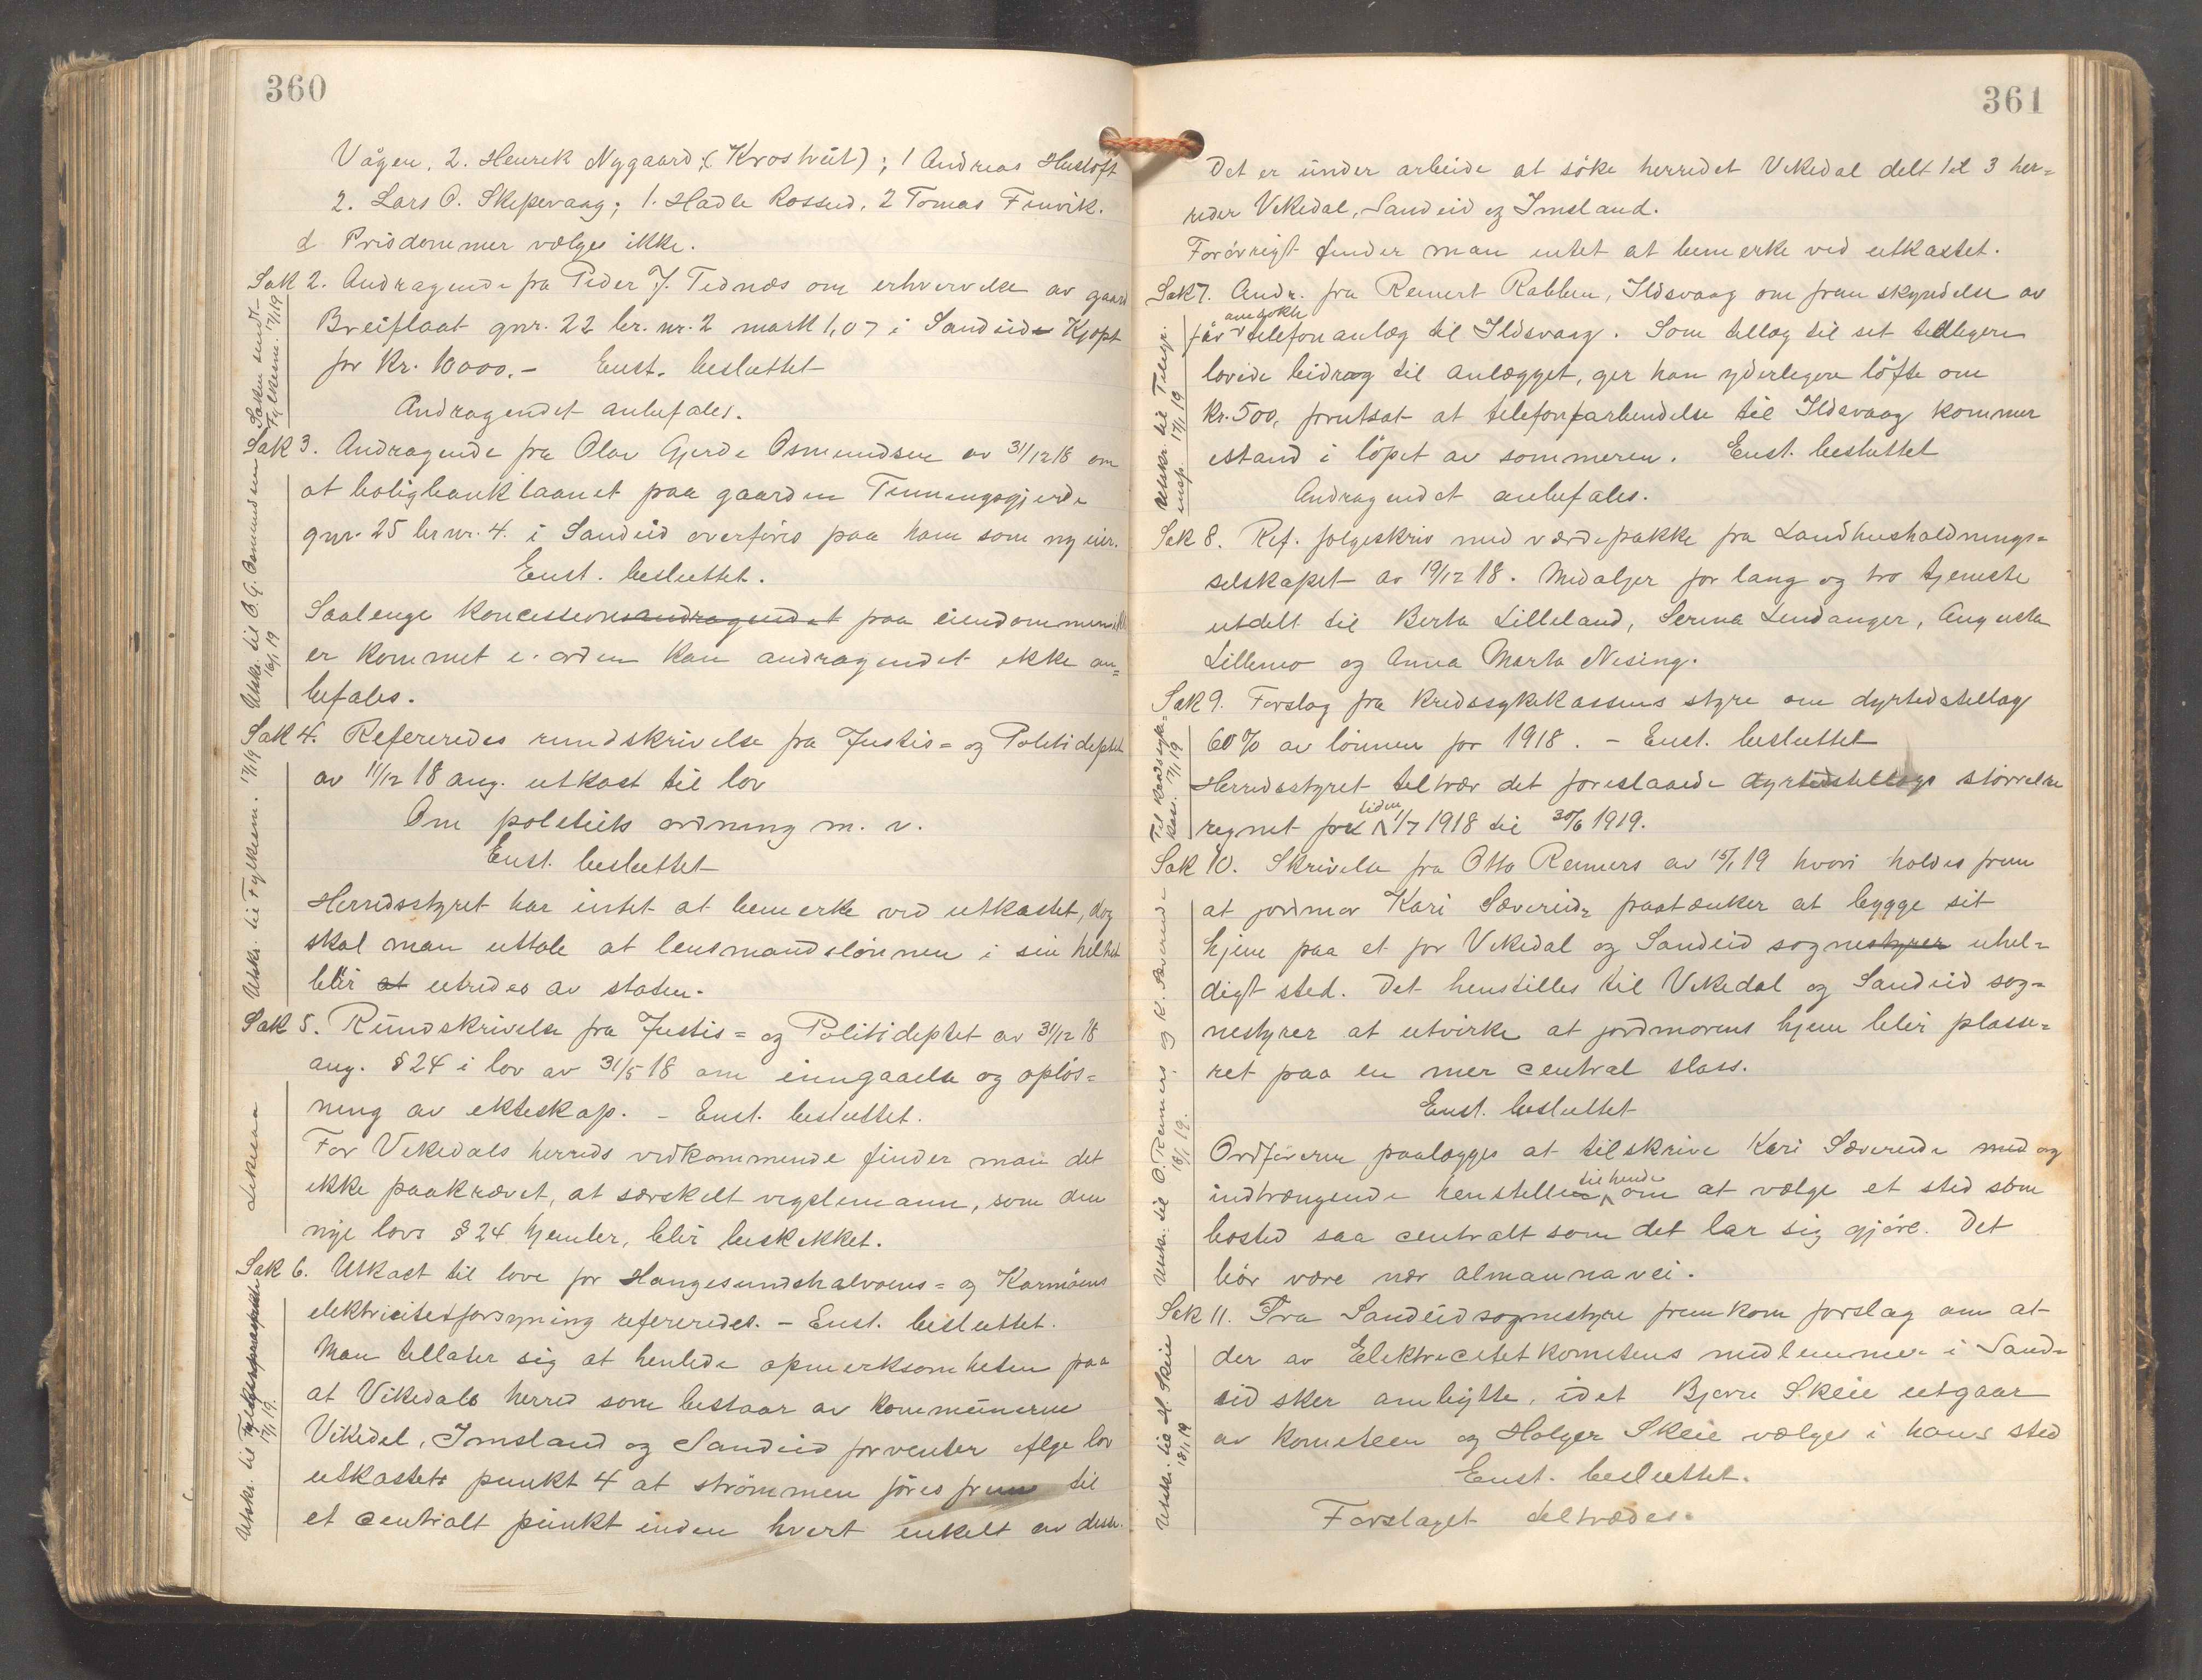 360
Vågen, 2. Henrik Nygaard; (Kroshveit); 1 Andreas Hustoft
2. Lars O. Skipevaag; 1. Hadle Rossed, 2 Tomas Finvik.
d Prisdommer vælges ikke.
Sak 2. Andragende fra Peder J. Tednæs om erhvervelse av gaard
Breiflaat gnr. 22 br. nr. 2 mark 1,07 i Sandeid Kjøpt
for kr. 10000.- Enst. besluttet
Andragendet anbefales.
Saken sendt Fylkesm. 17/1 19
Sak 3. Andragende fra Olav Gjerde Osmundsen av 31/12 18 om
at boligbanklaanet paa gaarden Tenningsgjerde
gnr. 25 br nr. 4. i Sandeid overføres paa ham som ny eier.
Enst. besluttet.
Saalenge koncessionsandragendet paa eiendommen ikke
er kommet i orden kan andragendet ikke an=
befales.
Utskr. til O. G. Osmundsen 16/1 19
Sak 4. Refereredes rundskrivelse fra Justis= og Politideptet
av 11/12 18 ang. utkast til lov
Om politiets ordning m. v.
Enst. besluttet
Herredsstyret har intet at bemerke ved utkastet, dog
skal man uttale at lensmandslönnen i sin helhet
blir at utredes av staten.
Utskr. til Fylkesm. 17/1 19
Sak 5. Rundskrivelse fra Justis= og Politideptet av 31/12 18
ang. § 24 i lov av 31/5 18 om inngaaelse og oplös=
ning av ekteskap. - Enst. besluttet.
For Vikedals herreds vedkommende finder man det
ikke paakrævet, at særskilt vigslemann, som den
nye lovs § 24 hjemler, blir beskikket.
Sak 6. Utkast til love for Haugesundshalvøens= og Karmöens
elektricitetsforsyning refereredes. - Enst. besluttet.
Man tillater sig at henlede opmerksomheten paa
at Vikedals herred som bestaar av kommunerne
Vikedal, Imsland og Sandeid forventer ifølge lov
utkastets punkt 4 at strömmen föres frem til
et centralt punkt inden hvert enkelt av disse.
Utskr. til 17/1 19.
361
Det er under arbeide at söke herredet Vikedal delt til 3 her=
reder Vikedal, Sandeid og Imsland.
Forøvrigt finder man intet at bemerke ved utkastet.
Sak 7. Andr. fra Reinert Rabben, Ildsvaag om fremskyndelse av
ansökte
telefonanlæg til Ildsvaag. Som tillæg til sit tidligere
lovede bidrag til anlægget, gir han yderligere löfte om
kr. 500, forutsat at telefonforbindelse til Ildsvaag kommer
istand i löpet av sommeren. Enst. besluttet
Andragendet anbefales.
Utskr. til Telegr. insp. 17/1 19
Sak 8. Ref. følgeskriv med værdipakke fra Landhusholdnings=
selskapet av 19/12 18. Medaljer for lang og tro tjeneste
utdelt til Berta Lilleland, Serina Lindanger, Augusta
Lillemo og Anna Marta Nising.
Sak 9. Forslag fra kredssykekassens styre om dyrtidstillæg
60% av lönnen for 1918. - Enst. besluttet
Herredsstyret tiltrær det foreslaaede dyrtidstillægs störrelse
regnet for tiden 1/7 1918 til 30/6 1919.
Til kredssyke-kass. 17/1 19
Sak 10. Skrivelse fra Otto Reimers av 15/1 19 hvori holdes frem
at jordmor Kari Sæverude paatænker at bygge sit
hjem paa et for Vikedal og Sandeid sognestyrer uhel=
digt sted. Det henstilles til Vikedal og Sandeid sog=
nestyrer at utvirke at jordmorens hjem blir plasse=
ret paa en mer central plass.
Enst. besluttet
Ordföreren paalægges at tilskrive Kari Sæverude med og
indtrængende henstille til hende om at vælge et sted som
bosted saa centralt som det lar sig gjöre. Det
bör være nær almannavei.
Utskr. til O. Reimers og K. Sæverude 18/1 19.
Sak 11. Fra Sandeid sognestyre fremkom forslag om at
der av Elektricitetkomiteens medlemmer i Sand=
eid sker ombytte, idet Bjarne Skeie utgaar
av komiteen og Holger Skeie vælges i hans sted
Enst. besluttet.
Forslaget tiltrædes.
Utskr. til H. Skeie 18/1 19